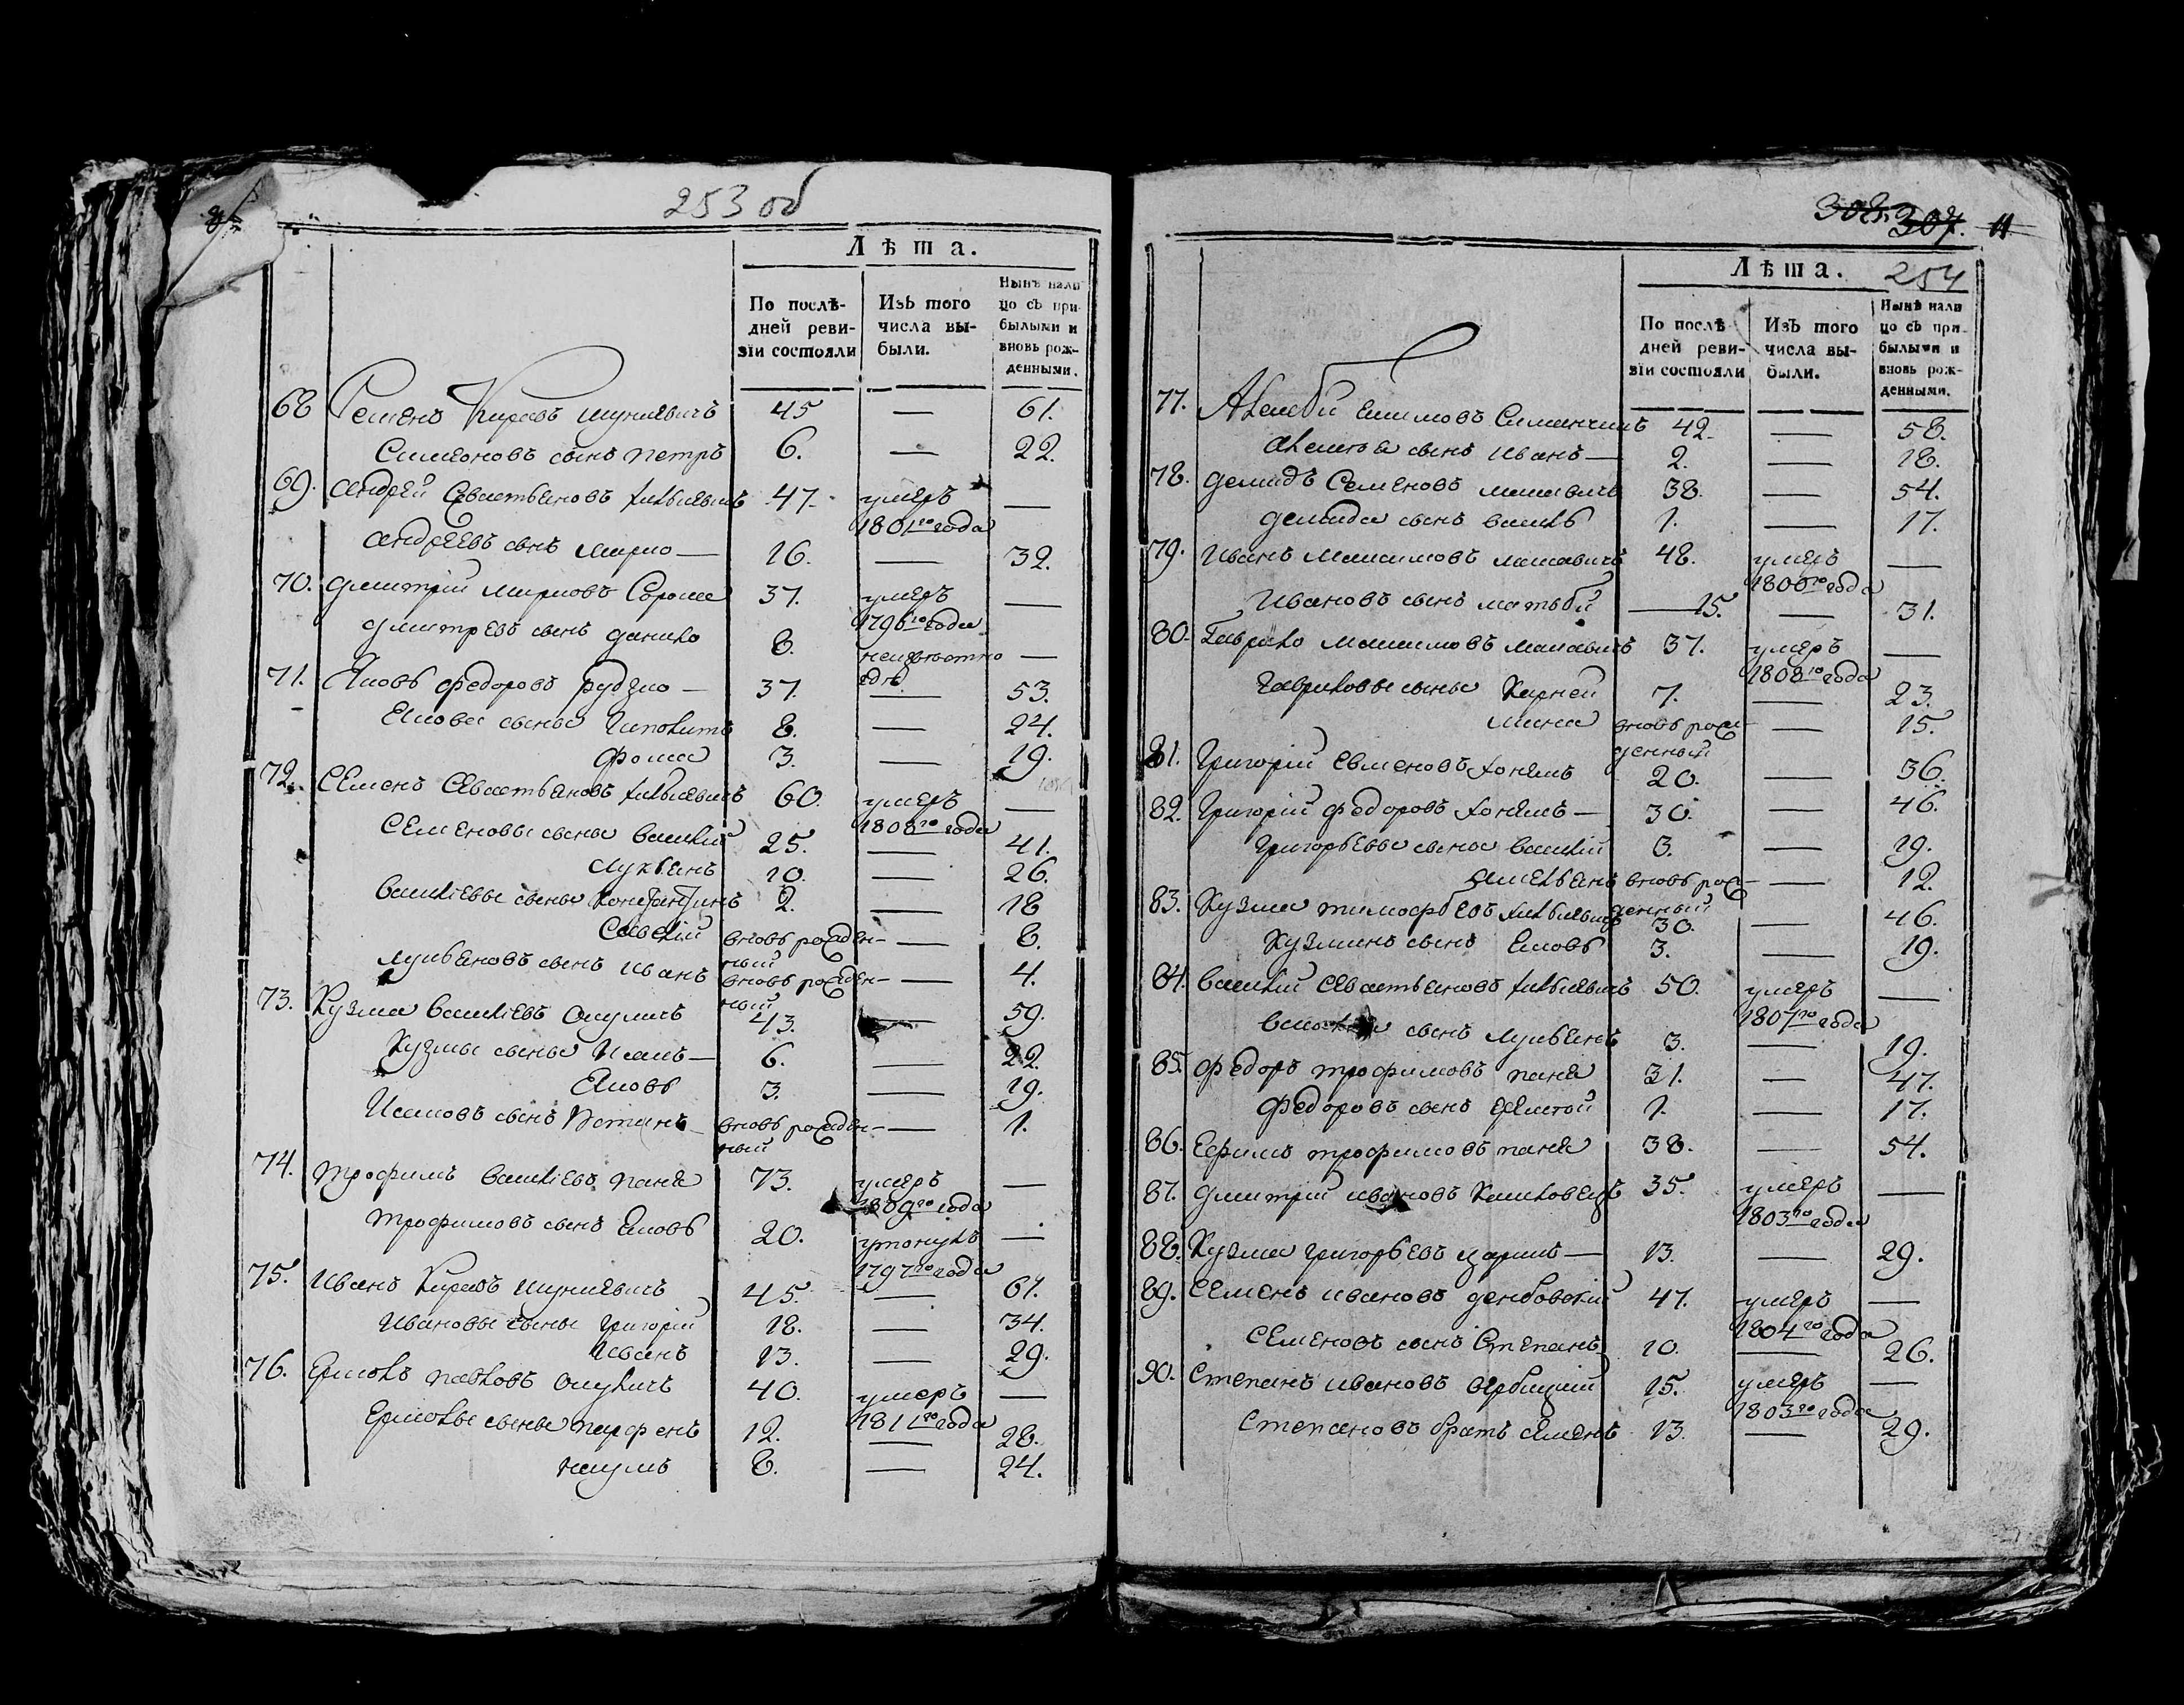 253 об
Лѣта.
По послѣ-
дней реви-
зіи состояли
Изъ того
числа вы-
были.
Нынѣ нали
цо съ при-
былыми и
вновь рож-
денными.
68 Семенъ Кирѣевъ 45 — 61.
Симіоновъ сынъ петръ 6. — 22.
69. андрей Севастьеновъ 47. умеръ 1801го года —
андреевъ сынъ марко — 16. — 32.
70. дмитрій марковъ Сорока 37. умеръ 1796го года —
дмитревъ сынъ данило 8. неизвѣстно гдѣ —
71. Яковъ федоровъ рудзко — 37. — 53.
Якова сыны Иполитъ 8. — 24.
фома 3. — 19.
72. Семенъ Севастьеновъ 60. умеръ 1808го года —
Семеновы сыны василій 25. — 41.
лукьянъ 10. — 26.
василіевы сыны Константинъ 2. — 18
Савелій вновь рожден-ный — 8.
лукьяновъ сынъ иванъ вновь рожден-ный — 4.
73. Кузма василіевъ 43. — 59.
Кузмы сыны Исакъ — 6. — 22.
Яковъ 3. — 19.
Исаковъ сынъ вновь рожден-ный — 1.
74. трофимъ василіевъ паня 73. умеръ 1809го года —
трофимовъ сынъ Яковъ 20. утонулъ 1797го года —
75. Иванъ Кирѣевъ 45. — 61.
Ивановы сыны григорій 18. — 34.
Иванъ 13. — 29.
76. Ермолъ павловъ 40. умеръ 1811го года —
Ермолы сыны парфенъ 12. — 28.
наумъ 8. — 24.
308. 307. 11
254
Лѣта.
По послѣ-
дней реви-
зіи состояли
Изъ того
числа вы-
были.
Нынѣ нали
цо съ при-
былыми и
вновь рож-
денными.
77. Алексѣй 42. — 58.
алексѣя сынъ иванъ — 2. — 18.
78. демидъ Семеновъ 38. — 54.
демида сынъ василь 1. — 17.
79. Иванъ максимовъ 48. умеръ 1806го года —
Ивановъ сынъ матвѣй — 15. — 31.
80. Гаврило максимовъ 37. умеръ 1808го года —
гавриловы сыны Карней 7. — 23.
мина вновь рож-денный — 15.
81. Григорій 20. — 36.
82. Григорій федоровъ — 30. — 46.
григорьевы сыны василій 3. — 19.
емельянъ вновь рож-денный — 12.
83. Кузма тимофѣевъ 30. — 46.
Кузминъ сынъ Яковъ 3. — 19.
84. василій Севастьеновъ 50. умеръ 1807го года —
сынъ лукьянъ 3. — 19.
85. федоръ трофимовъ паня 31. — 47.
федоровъ сынъ 1. — 17.
86. Ефимъ трофимовъ паня 38. — 54.
87. дмитрій ивановъ 35. умеръ 1803го года —
88. Кузма григорьевъ — 13. — 29.
89. Семенъ ивановъ 47. умеръ 1804го года —
Семеновъ сынъ Степанъ 10. — 26.
90. Степанъ ивановъ вербицкій 15. умеръ 1803го года —
Степановъ братъ 13. — 29.